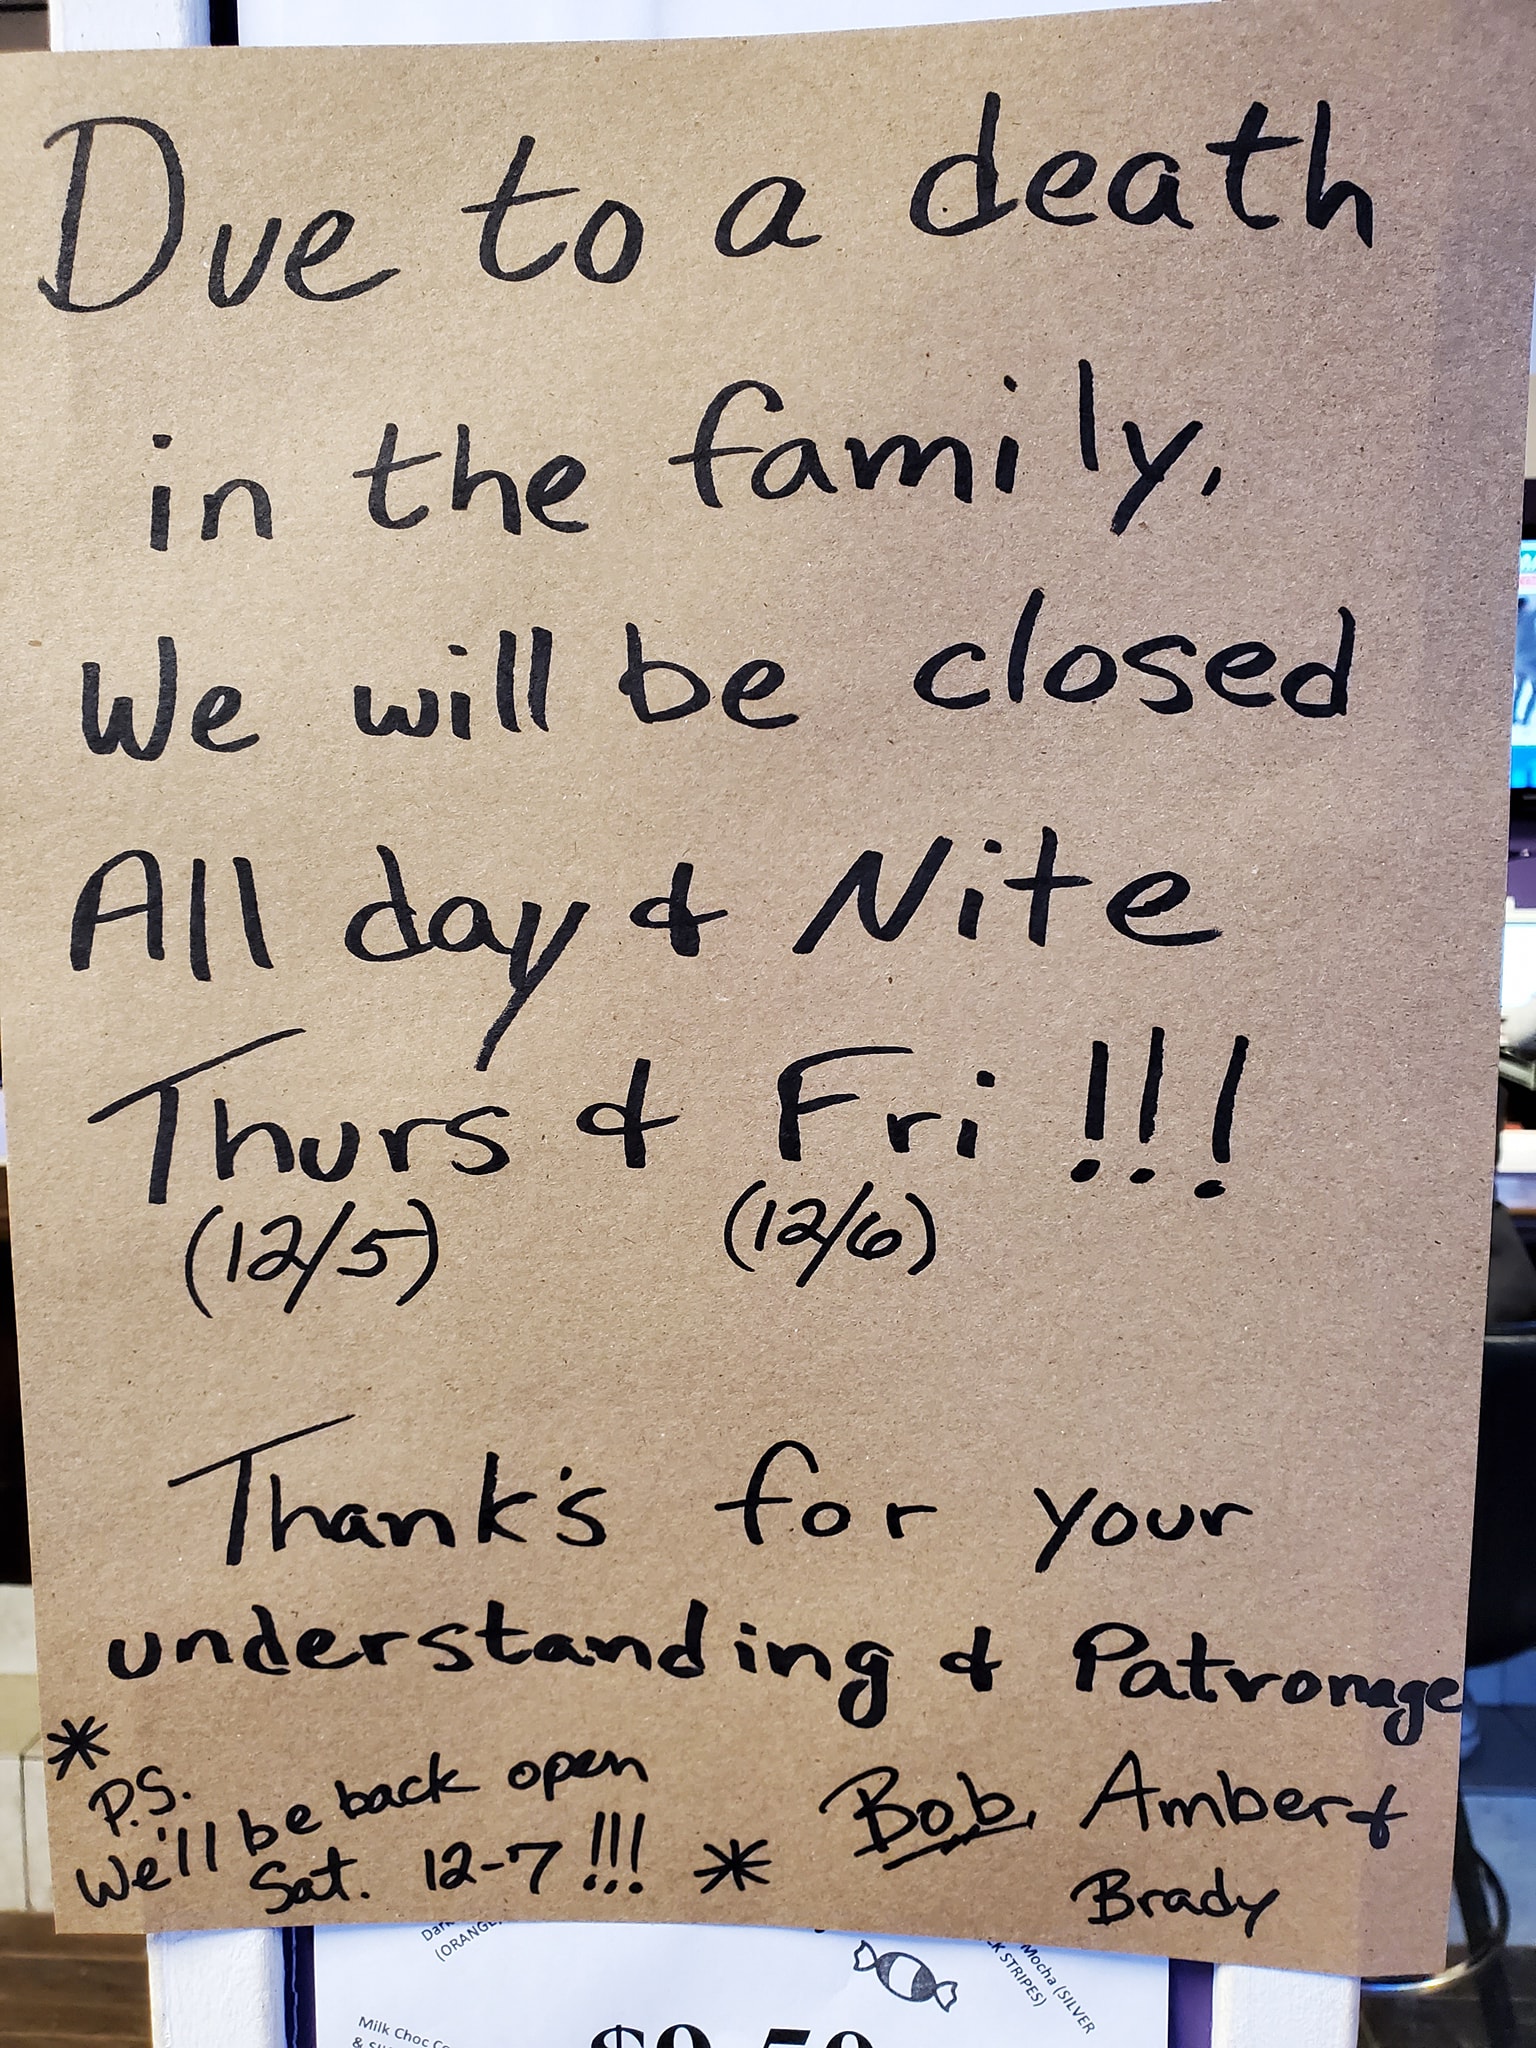 Due to a death
in the family,
We will be closed
All day & Nite
Thurs & Fri !!!
(12/5) (12/6)
Thank's for your
understanding & Patronage
*
P.S.
We'll be back open
Sat. 12-7 !!! *
Bob, Amber &
Brady
(ORANGE
Mocha (SILVER
K STRIPES)
Milk Choc